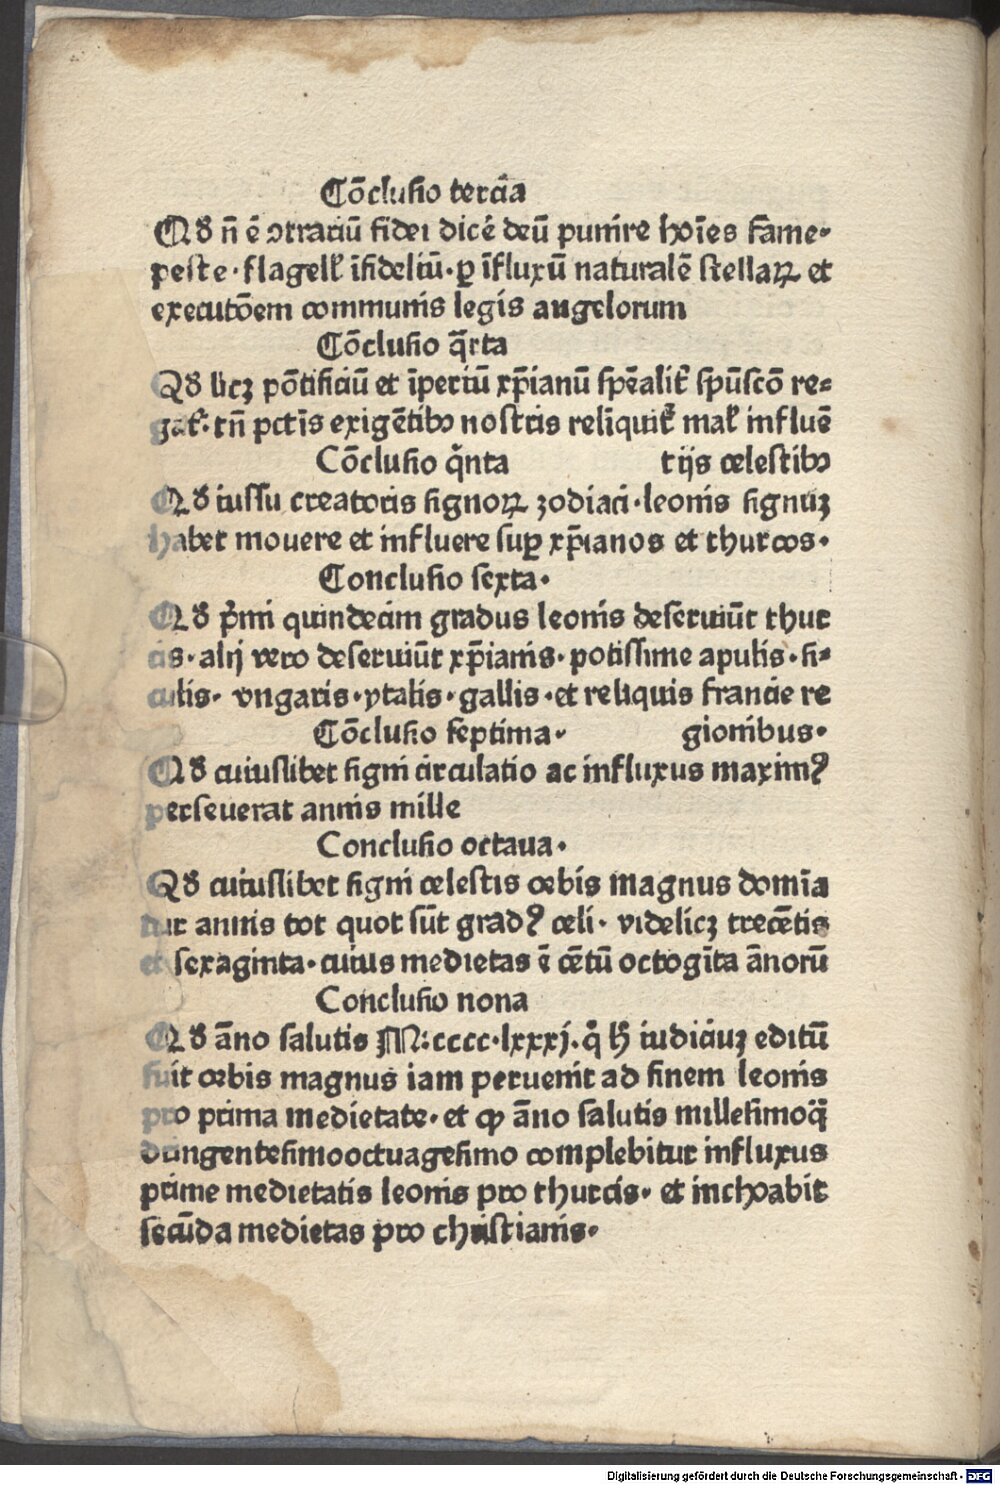 Cōclusio tercia
Qď n̄ ē ↄtrariū fidei dicē deū punire hoīes fame·
peste·flagelł īfideliū·ꝑ īfluxū naturalē stellaꝝ et
executōem communis legis angelorum
Cōclusio q̄rta
Qď licꝫ pōtificiū et īperiū xp̄ianū sp̄ealit̄ spūscō re⸗
gat̄·tn̄ pctīs exigētibꝰ nostris relīquit̄ mał influē
Cōclusio q̄nta tijs celestibꝰ
Qď iussu creatoris signoꝝ zodiaci·leonis signuꝫ
habet mouere et influere suꝑ xp̄ianos et thurcos·
Conclusio sexta·
Qď p̄mi quindecim gradus leonis deseruiūt thur
cis·alij vero deseruiūt xp̄ianis·potissime apulis·si⸗
culis· vngaris·ytalis·gallis·et reliquis francie re
Cōclusio septima· gionibus·
Qď cuiuslibet signi circulatio ac influxus maximꝰ
perseuerat annis mille
Conclusio octaua·
Qď cuiuslibet signi celestis orbis magnus domīa
tur annis tot quot sūt gradꝰ celi· videlicꝫ trecētis
et sexaginta·cuius medietas ē cētū octogīta ānorū
Conclusio nona
Qď āno salutis M:cccc·lxxxj·q̄ ħ iudiciuꝫ editū
fuit orbis magnus iam peruenit ad finem leonis
pro prima medietate·et ꝙ āno salutis millesimoq̄
dringentesimooctuagesimo complebitur influxus
prime medietatis leonis pro thurcis· et inchoabit
secūda medietas pro christianis·
Digitalisierung gefördert durch die Deutsche Forschungsgemeinschaft · DFG